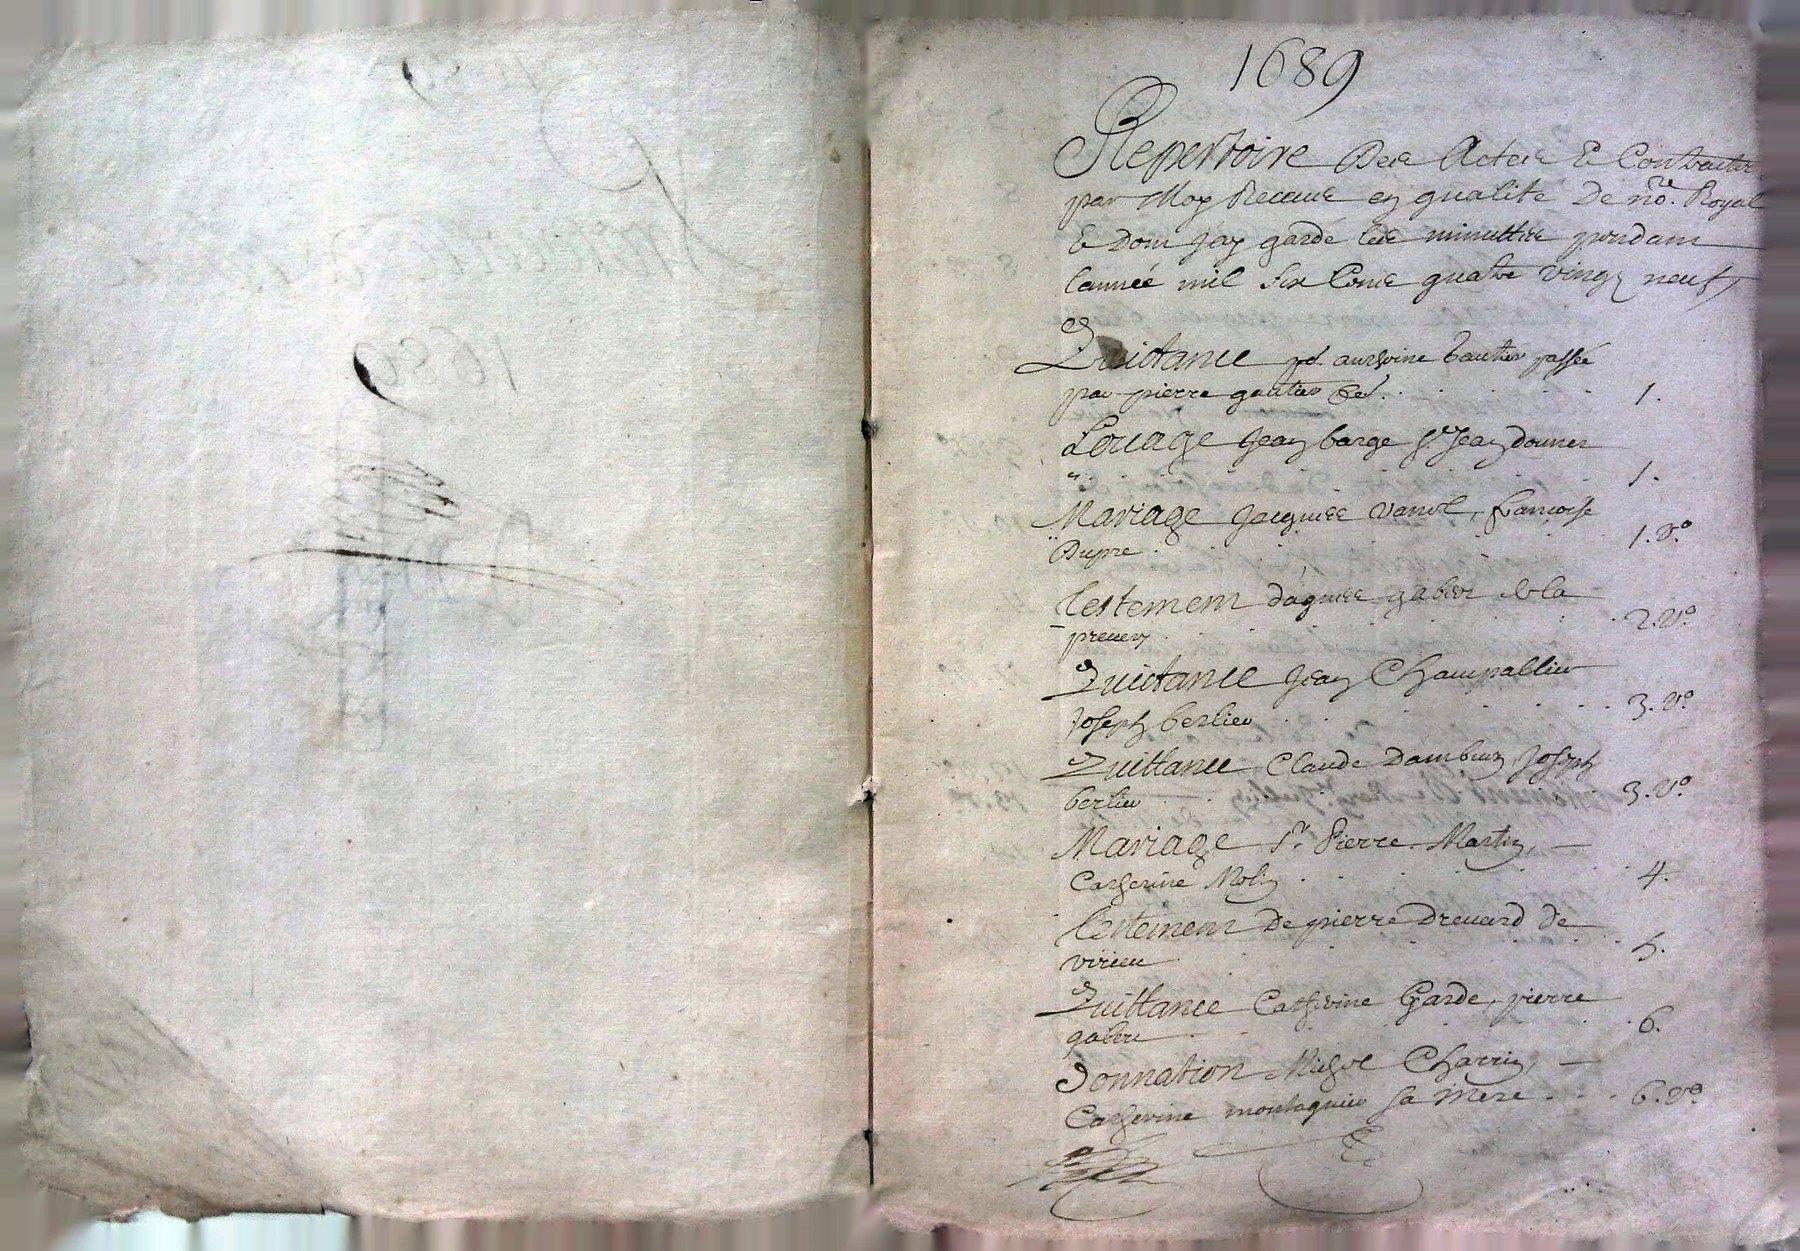 1689
Repertoire Des Actes & Contractz
par Moy Receus en qualité De no.re Royal
& Dont Jay garde les minuttes pendant
lannée mil six Cens quatre vingz neuf
Quictance pr anthoine Gautier passée
par pierre gautier
1.
Louage Jean barge Sr Jean
1.
Mariage Jacques Vanel, francoise
Dupre
1. Vo.
testement dagnies gabet de la
2. Vo.
Quictance Jean Champallier
Joseph berlier
3. Vo.
Quittance Claude Dambuin, Joseph
berlier
3. Vo.
Mariage Sr. Pierre Martin,
Catherine Molin
4.
testement De pierre Drevard de
virieu
5.
Quittance Catherine Garde, pierre
gabet
6.
Donnation Michel Charrin,
Catherine montagnier sa mere
6. Vo.